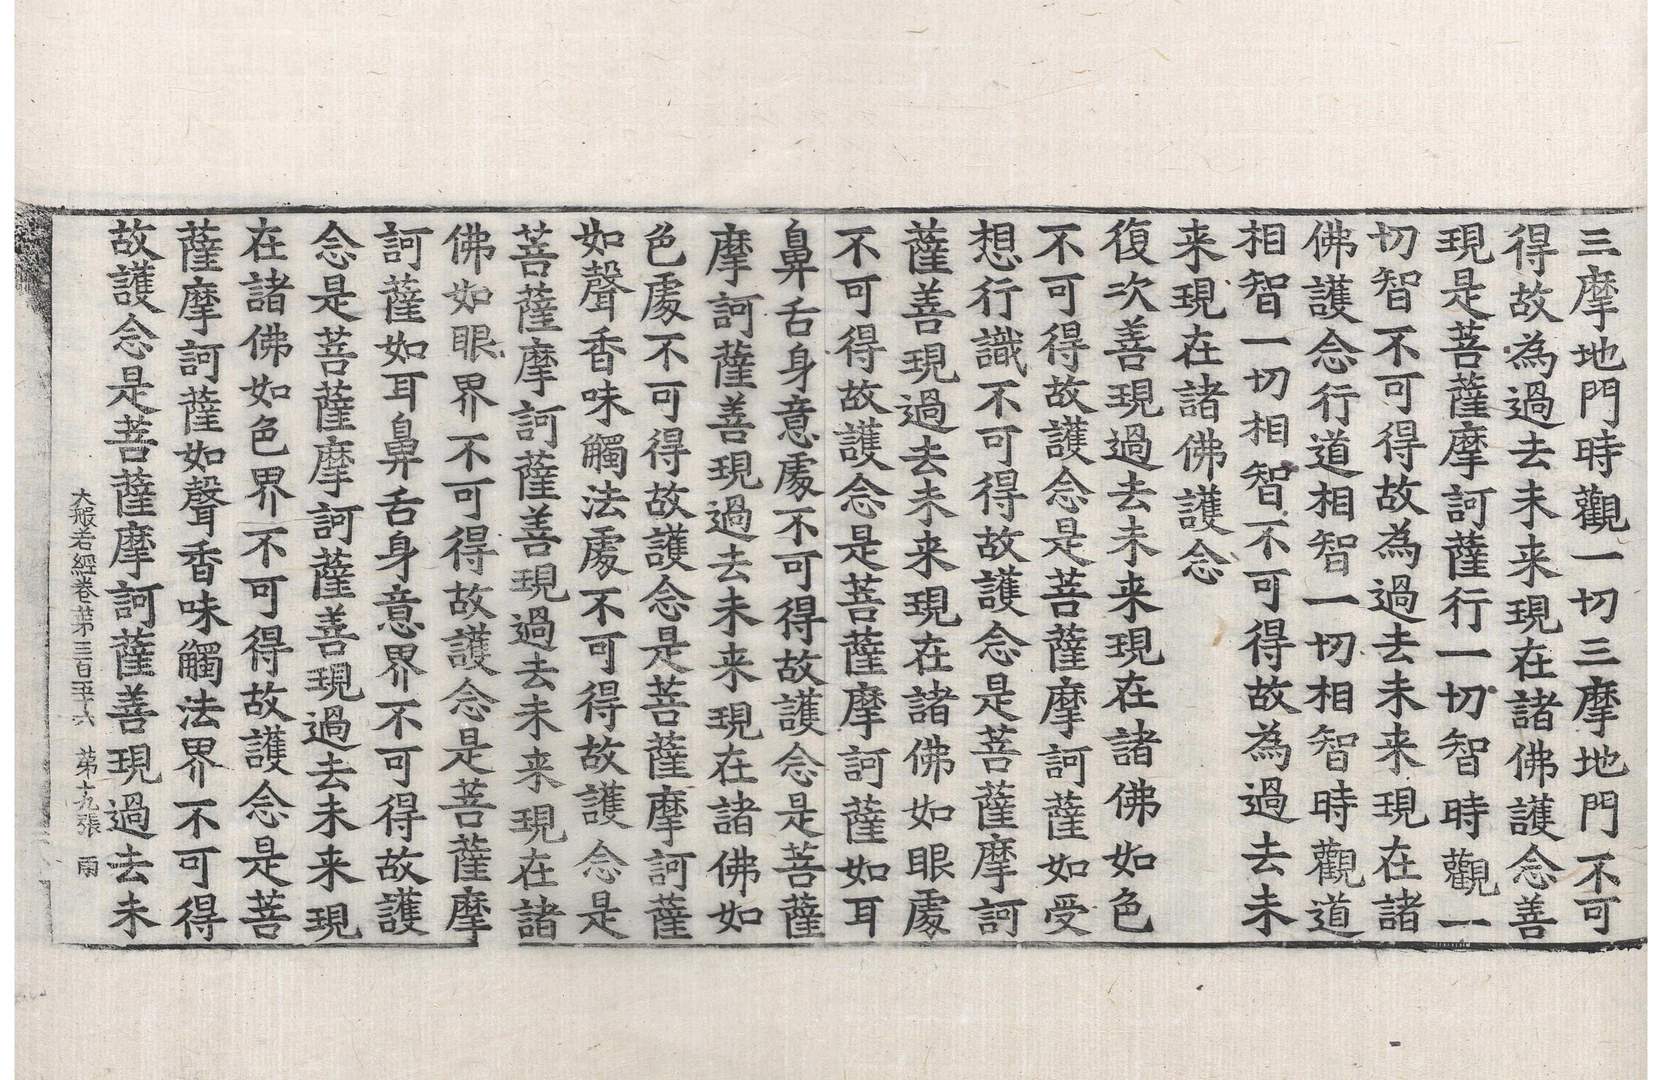 三摩地門時觀一切三摩地門不可
得故為過去未来現在諸佛護念善
現是菩薩摩訶薩行一切智時觀一
切智不可得故為過去未来現在諸
佛護念行道相智一切相智時觀道
相智一切相智不可得故為過去未
来現在諸佛護念
復次善現過去未来現在諸佛如色
不可得故護念是菩薩摩訶薩如受
想行識不可得故護念是菩薩摩訶
薩善現過去未来現在諸佛如眼處
不可得故護念是菩薩摩訶薩如耳
鼻舌身意處不可得故護念是菩薩
摩訶薩善現過去未来現在諸佛如
色處不可得故護念是菩薩摩訶薩
如聲香味觸法處不可得故護念是
菩薩摩訶薩善現過去未来現在諸
佛如眼界不可得故護念是菩薩摩
訶薩如耳鼻舌身意界不可得故護
念是菩薩摩訶薩善現過去未来現
在諸佛如色界不可得故護念是菩
薩摩訶薩如聲香味觸法界不可得
故護念是菩薩摩訶薩善現過去未
大般若經卷苐三百五十六　苐十九張　雨